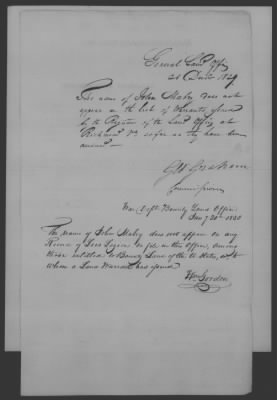 General Land Off
24 Decr 1829
The name of John Maby does not
appear on the list of Warrants filed
by the Register of the Land Office at
Richmond Va so far as they have been
Geo Graham
Commissioner
War Dept Bounty Land Office
Jany 20th 1830
The name of John Maby does not appear on any
Record of Lees Legion on file in this Office, among
those entitled to Bounty Land of the U States, or to
whom a Land Warrant has issued
Wm Gordon